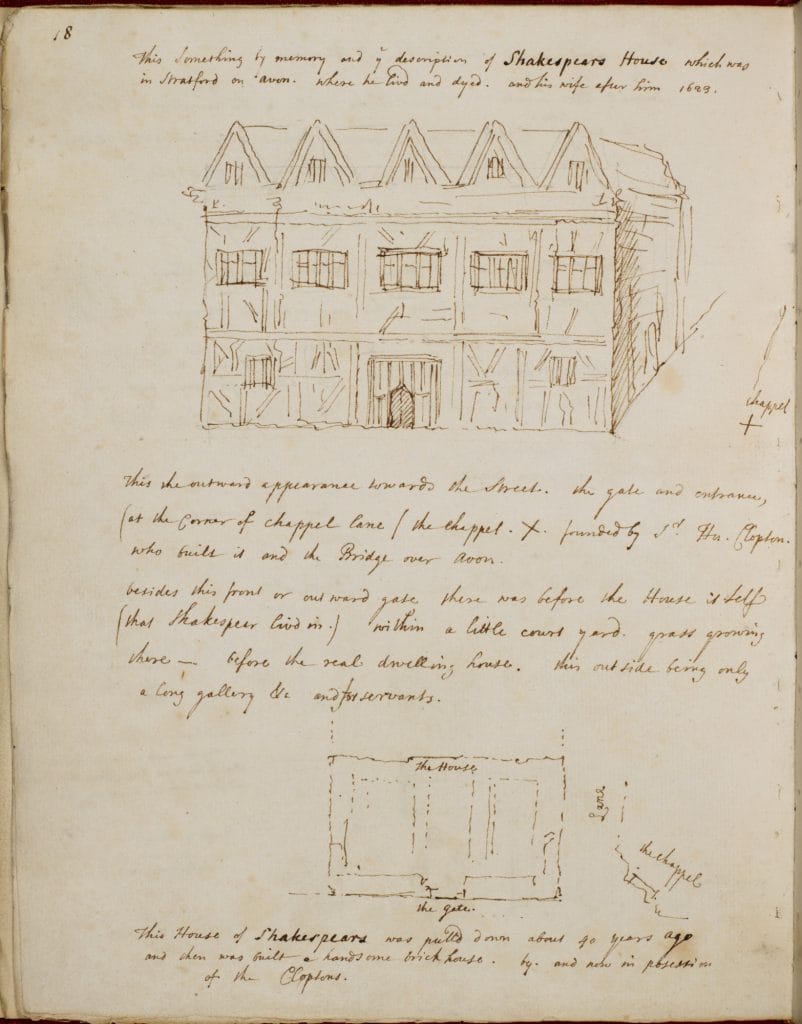 18
This Something by memory and yͤ description of Shakespears House which was
in Stratford on avon. where he livd and dyed. and his wife after him 1623.
chappel
This the outward appearance towards the Street. the gate and entrance,
(at the Corner of chappel lane / the chappel. X. founded by Sʳ. Hu. Clopton.
who built it and the Bridge over Avon.
besides this front or outward gate there was before the House it self
(that Shakespear livd in.) within a little court yard. grass growing
there — before the real dwelling house. this outside being only
a long gallery &c and for servants.
the House
Lane
the chappel
the gate.
This House of Shakespears was pulld down about 40 years ago
and then was built a handsome brick house. by. and now in posession
of the Cloptons.